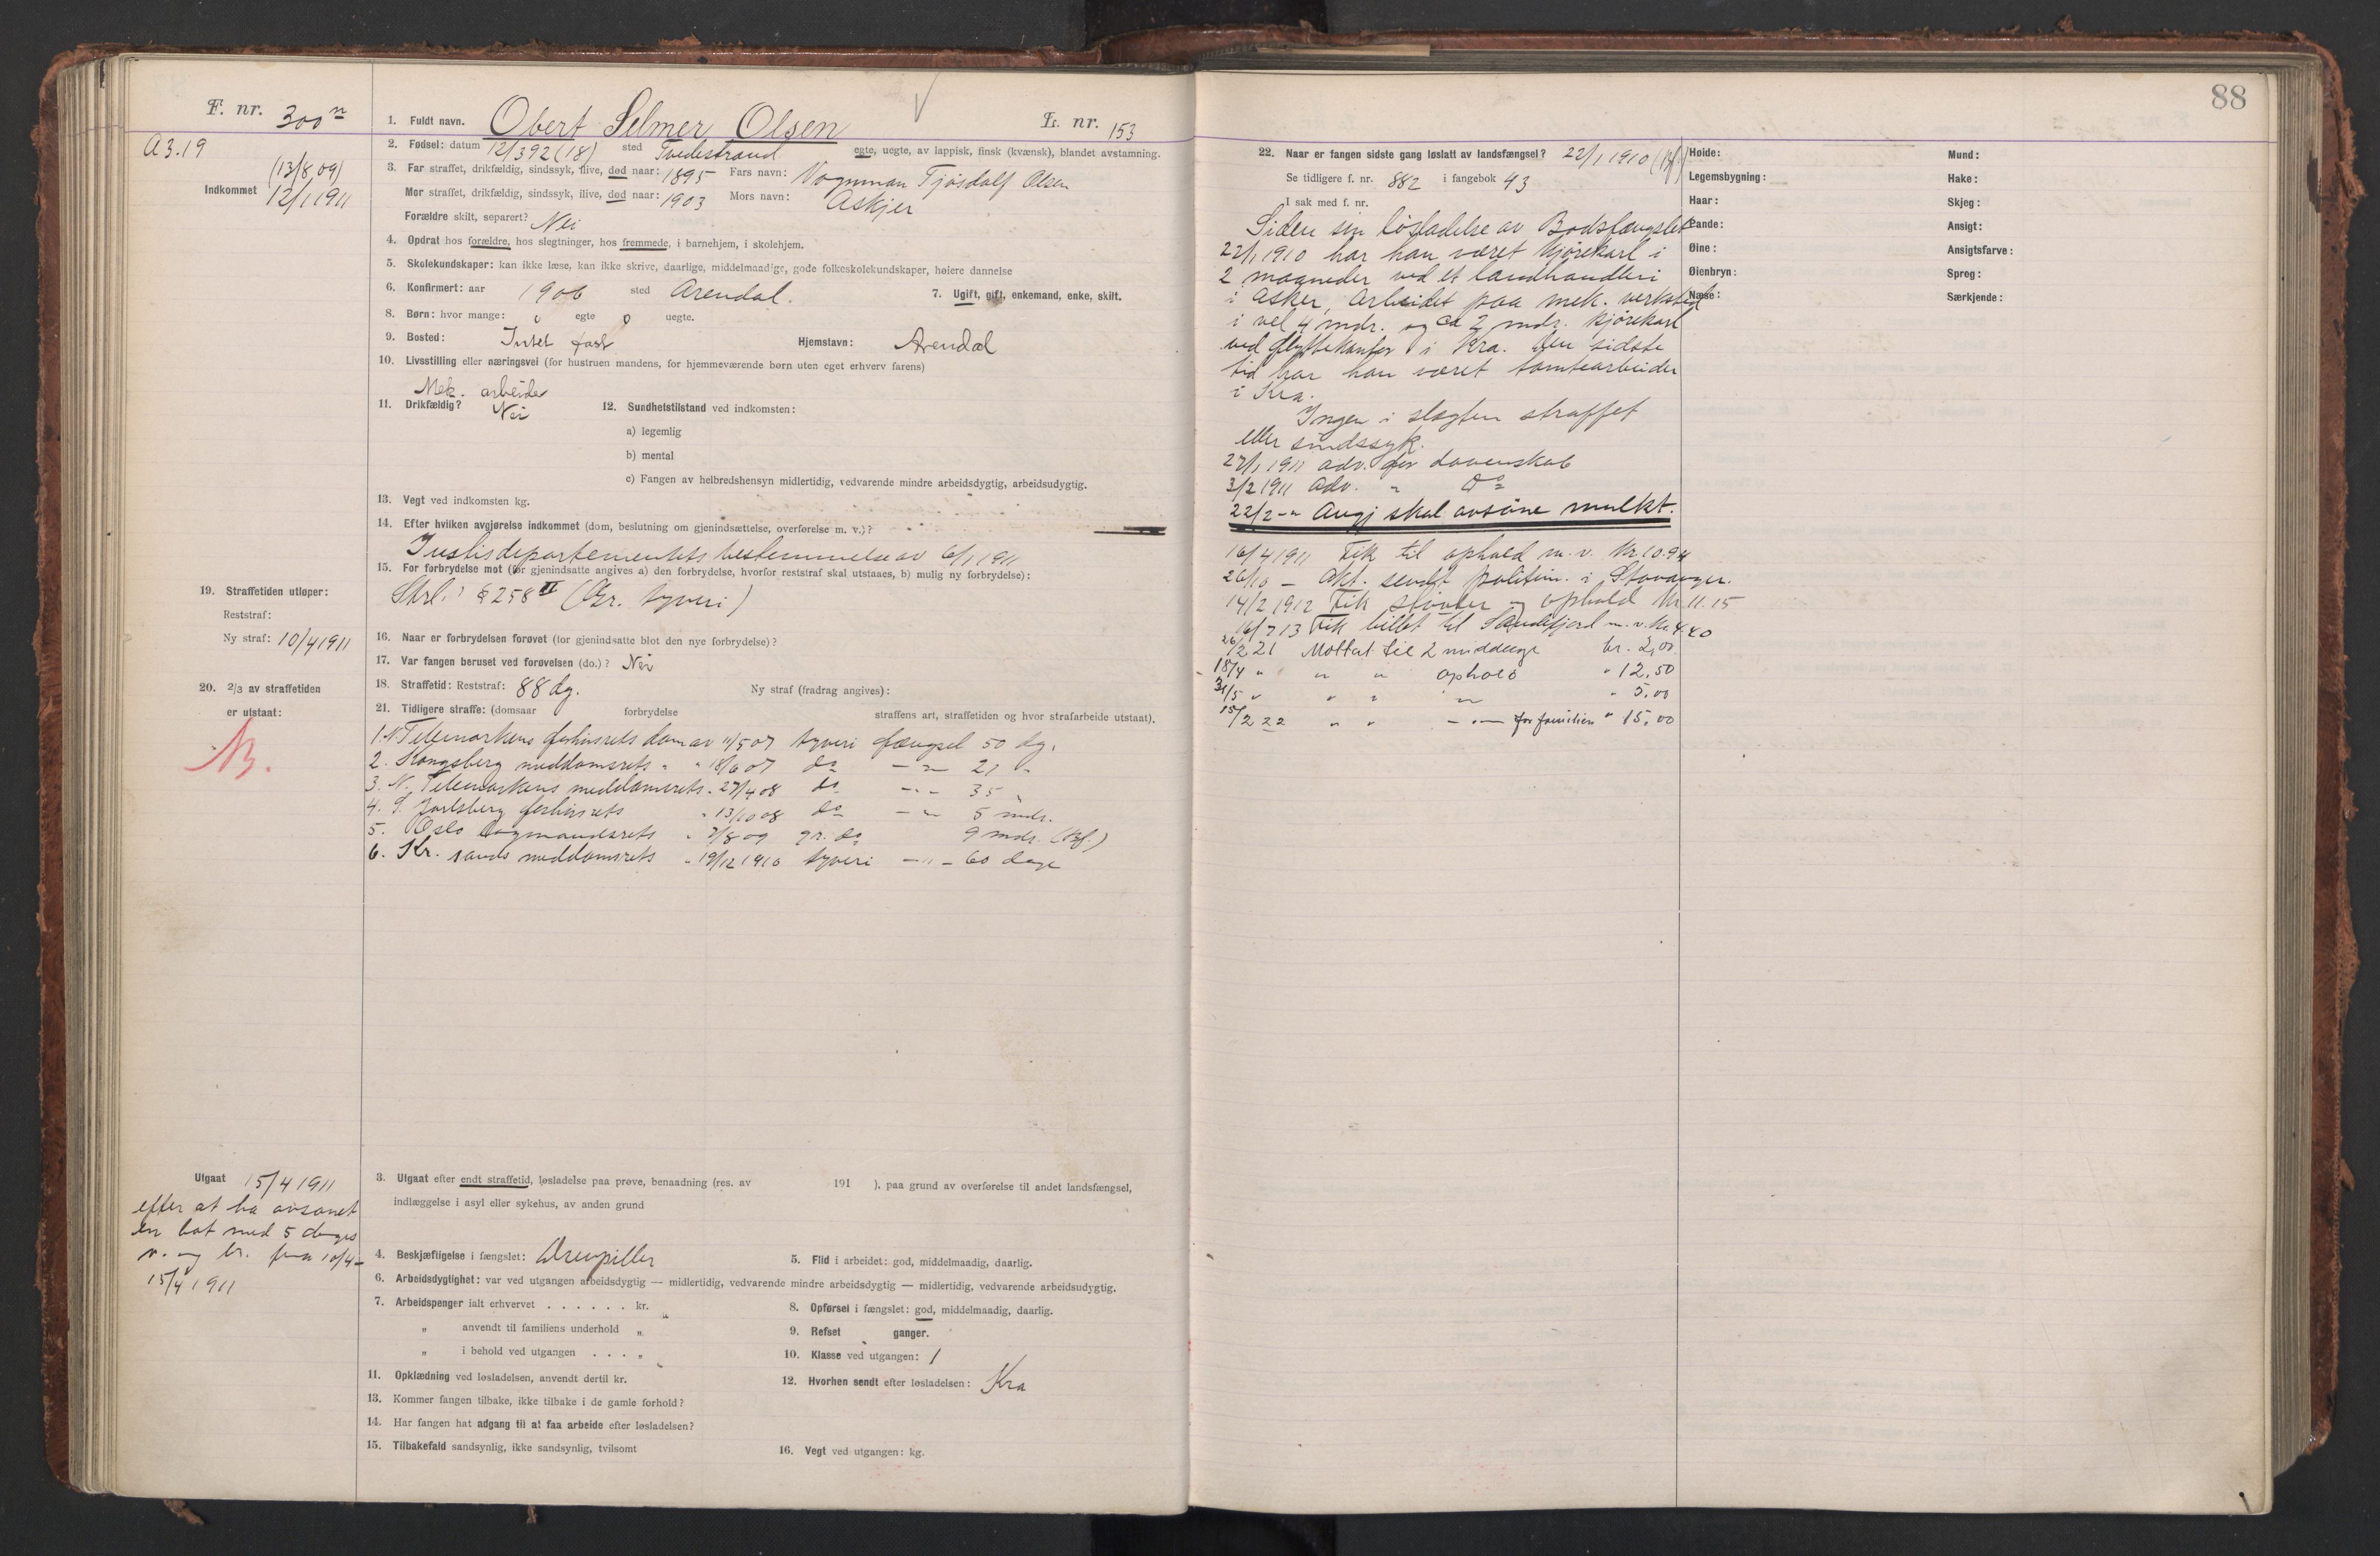 F. nr. 300
1. Fuldt navn. Obert Selmer Olsen L. nr. 153
A3.19
2. Fødsel: datum 12/3 92 (18) sted Tvedestrand egte, uegte, av lappisk, finsk (kvænsk), blandet avstamning.
(13/8 09)
Indkommet 12/1 1911
3. Far straffet, drikfældig, sindssyk, ilive, død naar: 1895 Fars navn: Vognman Tjøsdolf Olsen
Mor straffet, drikfældig, sindssyk, ilive, død naar: 1903 Mors navn: Askjer
Forældre skilt, separert? Nei
4. Opdrat hos forældre, hos slegtninger, hos fremmede, i barnehjem, i skolehjem.
5. Skolekundskaper: kan ikke læse, kan ikke skrive, daarlige, middelmaadige, gode folkeskolekundskaper, høiere dannelse
6. Konfirmert: aar 1906 sted Arendal. 7. Ugift, gift, enkemand, enke, skilt.
8. Børn: hvor mange: 0 egte 0 uegte.
9. Bosted: Intet fast Hjemstavn: Arendal
10. Livsstilling eller næringsvei (for hustruen mandens, for hjemmeværende børn uten eget erhverv farens)
Mek. arbeider
11. Drikfældig? Nei 12. Sundhetstilstand ved indkomsten:
a) legemlig
b) mental
c) Fangen av helbredshensyn midlertidig, vedvarende mindre arbeidsdygtig, arbeidsudygtig.
13. Vegt ved indkomsten kg.
14. Efter hvilken avgjørelse indkommet (dom, beslutning om gjenindsættelse, overførelse m. v.)?
Justisdepartementets bestemmelse av 6/1 1911
15. For forbrydelse mot (for gjenindsatte angives a) den forbrydelse, hvorfor reststraf skal utstaaes, b) mulig ny forbrydelse):
Strl. § 258 II (Gr. tyveri)
19. Straffetiden utløper:
Reststraf:
Ny straf: 10/4 1911
16. Naar er forbrydelsen forøvet (for gjenindsatte blot den nye forbrydelse)?
17. Var fangen beruset ved forøvelsen (do.)? Nei
18. Straffetid: Reststraf: 88 dg. Ny straf (fradrag angives):
20. 2/3 av straffetiden
er utstaat:
21. Tidligere straffe: (domsaar forbrydelse straffens art, straffetiden og hvor strafarbeide utstaat).
1. N. Telemarkens forhørsrets dom av 11/5 07 tyveri fængsel 50 dg.
2. Kongsberg meddomsrets " " 18/6 07 do — " — 21 "
3. N. Telemarkens meddomsrets " 27/4 08 do — " — 35 "
4. S. Jarlsberg forhørsrets " 13/10 08 do — " — 5 mdr.
5. Oslo lagmandsrets " 3/8 09 gr. do 9 mdr. (Bf.)
6. Kr. sands meddomsrets " 19/12 1910 tyveri — " — 60 dage
Utgaat 15/4 1911
efter at ha avsonet
en bot med 5 dages
v. og br. fra 10/4 –
15/4 1911
3. Utgaat efter endt straffetid, løsladelse paa prøve, benaadning (res. av 191 ), paa grund av overførelse til andet landsfængsel,
indlæggelse i asyl eller sykehus, av anden grund
4. Beskjæftigelse i fængslet: Drevpiller 5. Flid i arbeidet: god, middelmaadig, daarlig.
6. Arbeidsdygtighet: var ved utgangen arbeidsdygtig — midlertidig, vedvarende mindre arbeidsdygtig — midlertidig, vedvarende arbeidsudygtig.
7. Arbeidspenger ialt erhvervet . . . . . . kr. 8. Opførsel i fængslet: god, middelmaadig, daarlig.
" anvendt til familiens underhold " 9. Refset ganger.
" i behold ved utgangen . . . " 10. Klasse ved utgangen: 1
11. Opklædning ved løsladelsen, anvendt dertil kr. 12. Hvorhen sendt efter løsladelsen: Kra
13. Kommer fangen tilbake, ikke tilbake i de gamle forhold?
14. Har fangen hat adgang til at faa arbeide efter løsladelsen?
15. Tilbakefald sandsynlig, ikke sandsynlig, tvilsomt 16. Vegt ved utgangen: kg.
88
22. Naar er fangen sidste gang løslatt av landsfængsel? 22/1 1910
Se tidligere f. nr. 882 i fangebok 43
I sak med f. nr.
Siden sin løsladelse av Bodsfængslet
22/1 1910 har han været kjørekarl i
2 maaneder ved et landhandleri
i Asker, arbeidet paa mek. verksted
i vel 4 mdr. og ca 2 mdr. kjørekarl
ved flyttekontor i Kra. Den sidste
tid har han været tomtearbeider
i Kra.
Ingen i slegten straffet
eller sindssyk.
27/1 1911 adv. for dovenskab
3/2 1911 adv. " do
22/2 – " Angj skal avsone mulkt.
16/4 1911 Fik til ophold m. v. kr. 10.94
26/10 — Akt. sendt politim. i Stavanger.
14/2 1912 Fik støvler og ophold kr. 11.15
16/7 13 Fik billet til Sandefjord m. v. kr. 4.40
26/2 21 Mottat til 2 middage kr. 2,00
18/4 " " " ophold " 12,50
31/5 " " " " " 5,00
15/2 22 " " — " — for familien " 15,00
Høide:
Legemsbygning:
Haar:
Pande:
Øine:
Øienbryn:
Næse:
Mund:
Hake:
Skjeg:
Ansigt:
Ansigtsfarve:
Sprog:
Særkjende: